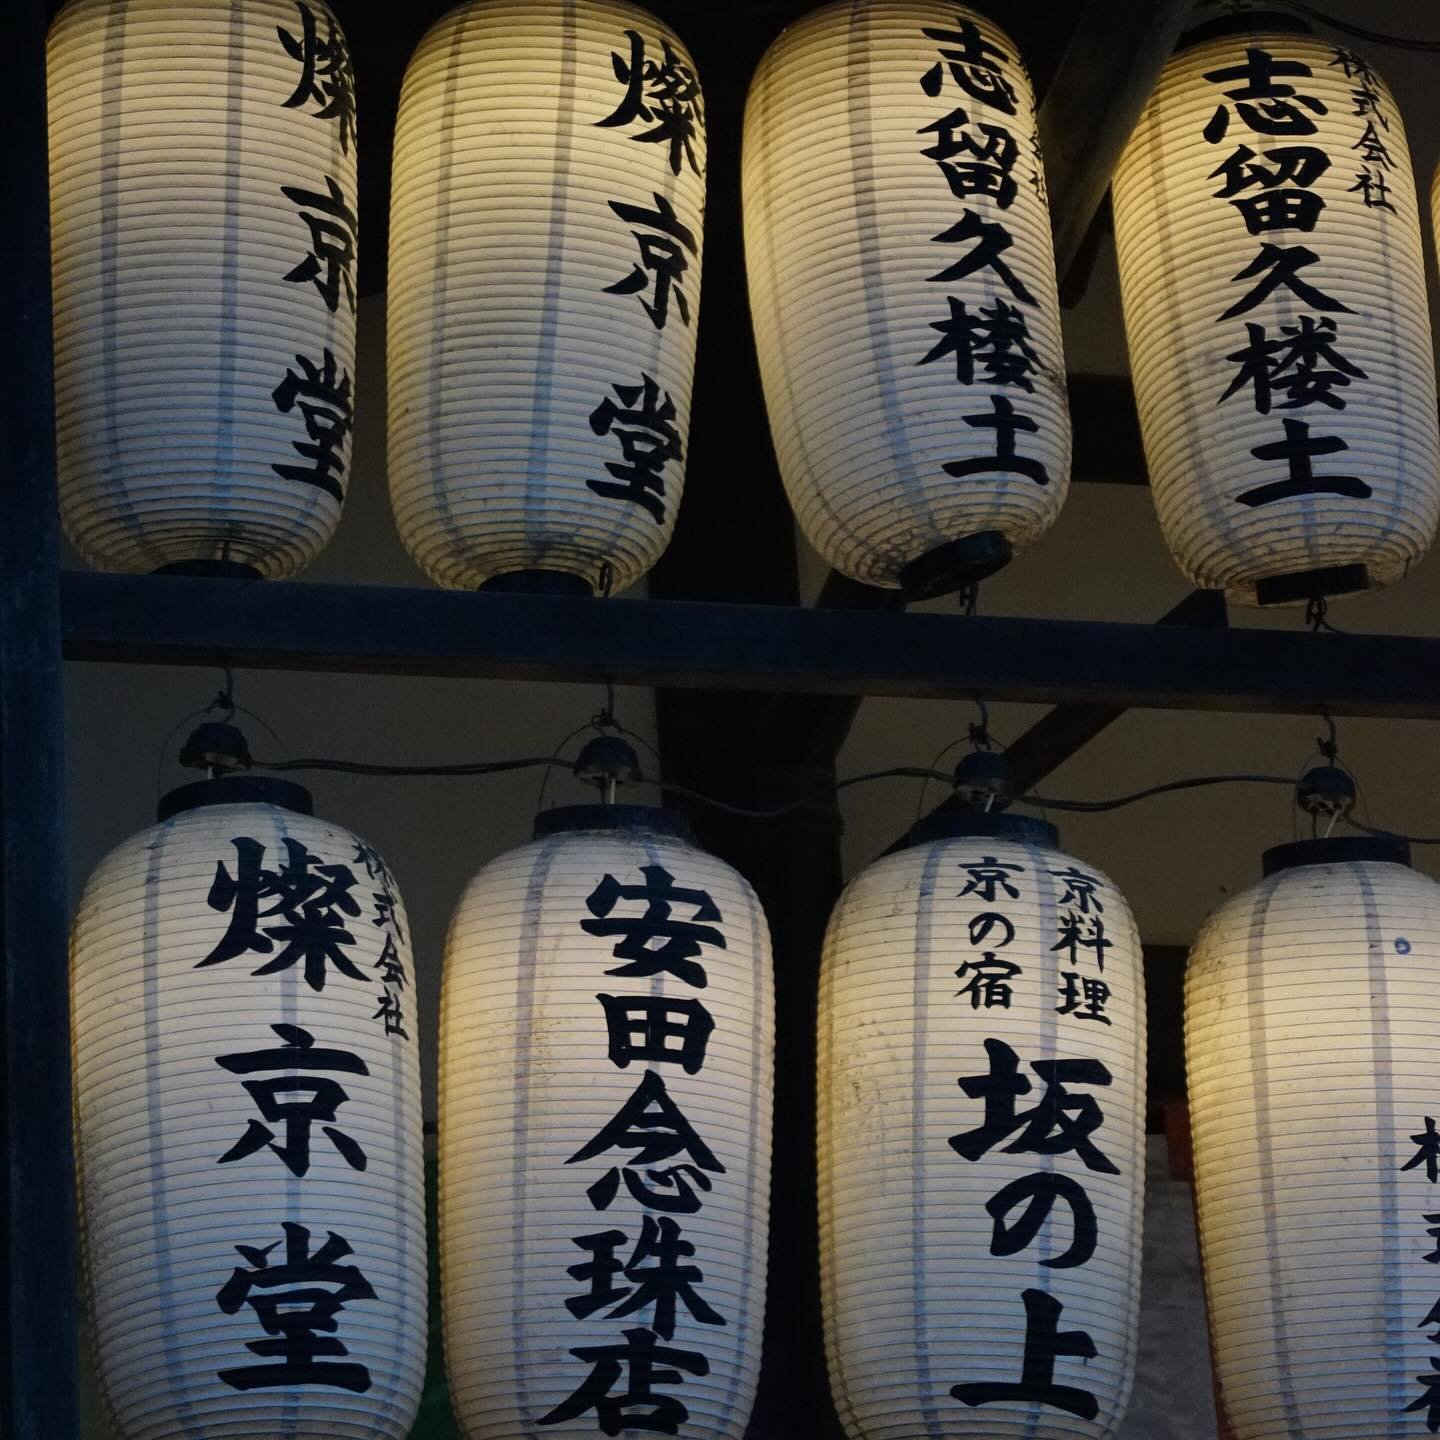 燦京堂
燦京堂
志留久楼土
株式会社
志留久楼土
株式会社
燦京堂
安田念珠店
京料理
京の宿
坂の上
株式会社